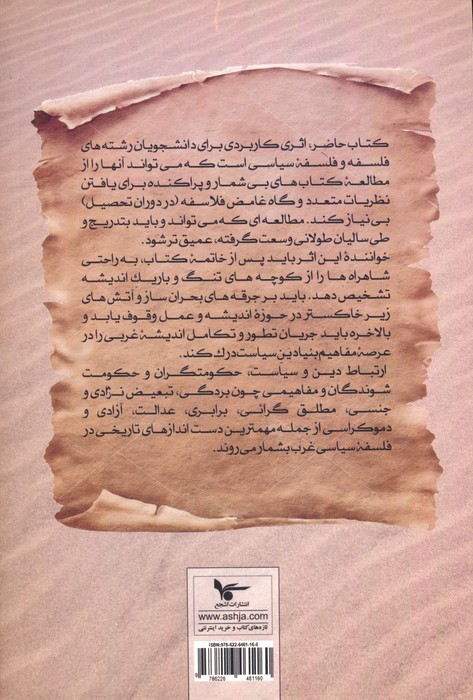 کتاب حاضر، اثری کاربردی برای دانشجویان رشته های
فلسفه و فلسفۀ سیاسی است که می تواند آنها را از
مطالعۀ کتاب های بی شمار و پراکنده برای یافتن
نظریات متعدد و گاه غامض فلاسفه (در دوران تحصیل)
بی نیاز کند. مطالعه ای که می تواند و باید بتدریج و
طی سالیان طولانی وسعت گرفته، عمیق تر شود.
خوانندۀ این اثر باید پس از خاتمۀ کتاب، به راحتی
شاهراه ها را از کوچه های تنگ و باریك اندیشه
تشخیص دهد. باید بر جرقه های بحران ساز و آتش های
زیر خاکستر در حوزۀ اندیشه و عمل وقوف یابد و
بالاخره باید جریان تطور و تکامل اندیشۀ غربی را در
عرصۀ مفاهیم بنیادین سیاست درك کند.
ارتباط دین و سیاست، حکومتگران و حکومت
شوندگان و مفاهیمی چون بردگی، تبعیض نژادی و
جنسی، مطلق گرائی، برابری، عدالت، آزادی و
دموکراسی از جمله مهمترین دست اندازهای تاریخی در
فلسفۀ سیاسی غرب بشمار می روند.
انتشارات اشجع
www.ashja.com
تازه‌های کتاب و خرید اینترنتی
ISBN: 978-622-6461-16-0
9 786226 461160